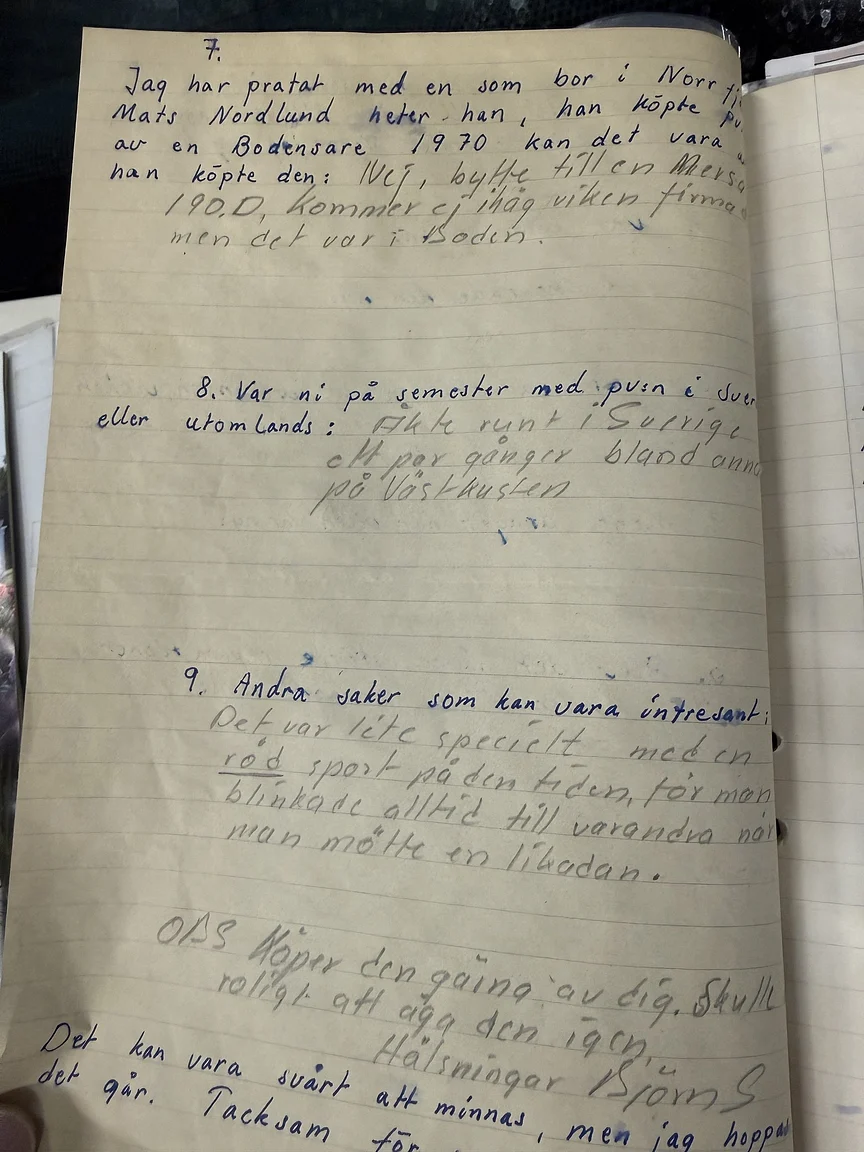 7.
Jag har pratat med en som bor i Norrfj
Mats Nordlund heter han, han köpte pv:
av en Bodensare 1970 kan det vara
han köpte den: Nej, bytte till en Mersa
190.D, kommer ej ihåg viken firma
men det var i Boden.
8. Var ni på semester med pv:n i Sver
eller utomlands: Åkte runt i Sverige
ett par gånger bland anna
på Västkusten
9. Andra saker som kan vara intresant:
Det var lite speciellt med en
röd sport på den tiden, för man
blinkade alltid till varandra när
man mötte en likadan.
OBS Köper den gäina av dig. Skulle
roligt att äga den igen.
Hälsningar Björn S
Det kan vara svårt att minnas, men jag hoppas
det går. Tacksam för